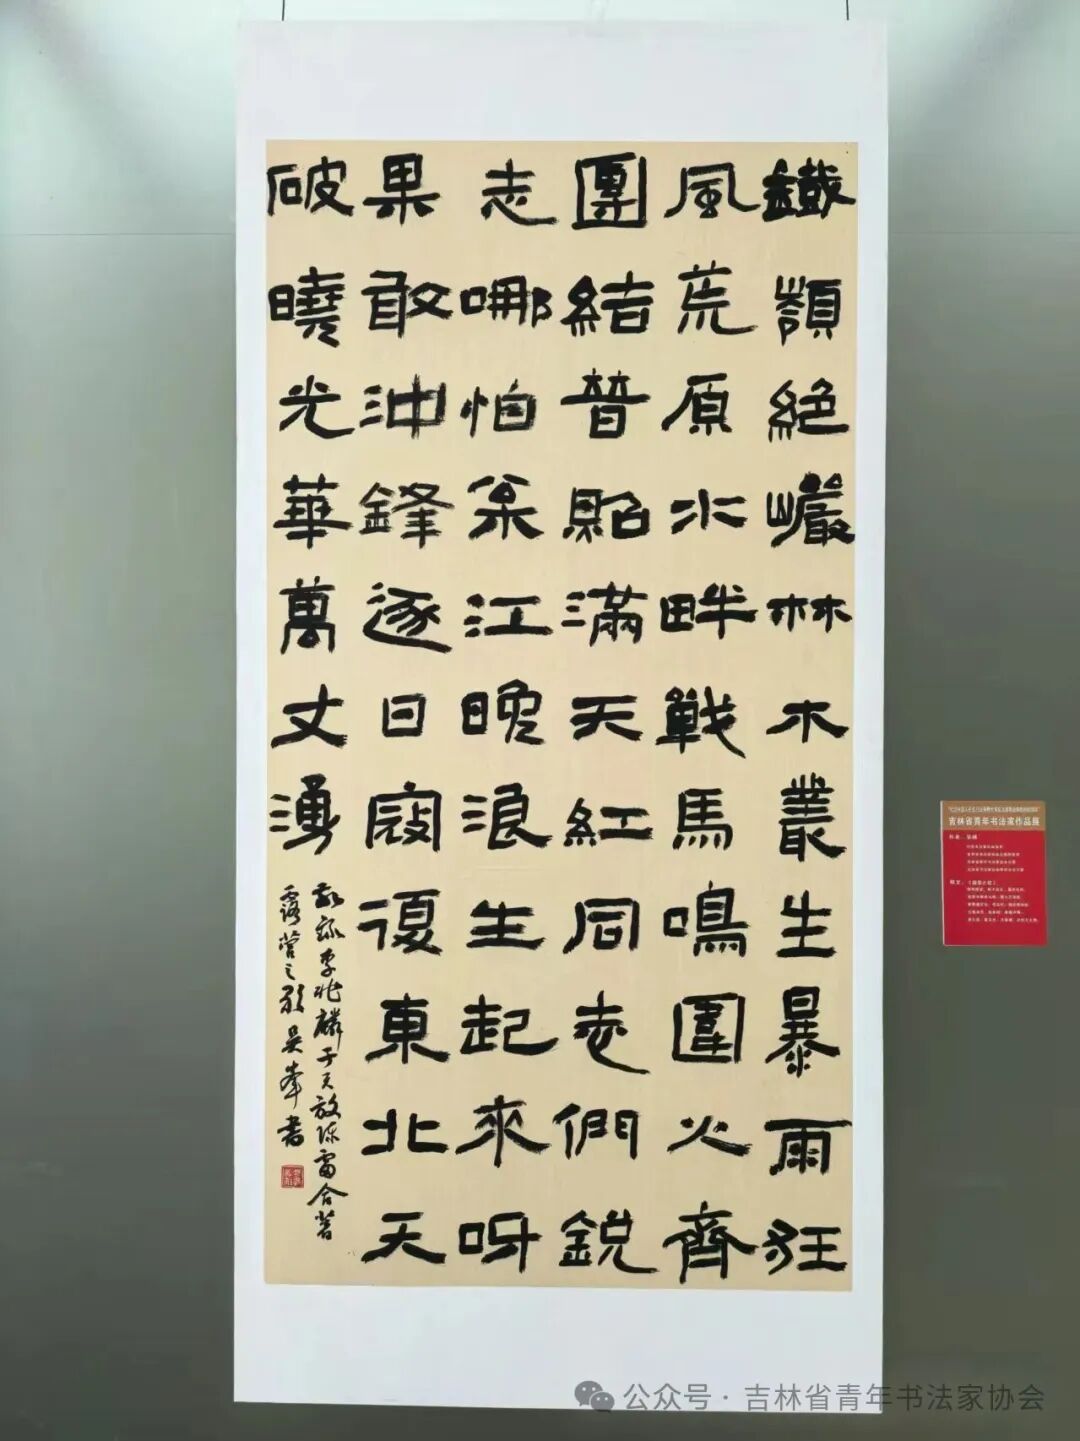 鐵嶺絕巖林木叢生暴雨狂
風荒原水畔戰馬鳴圍火齊
團結普照滿天紅同志們銳
志哪怕松江晚浪生起來呀
果敢沖鋒逐日寇復東北天
破曉光華萬丈湧
敬錄李兆麟于天放陳雷合著
露營之歌吳峯書
吉林省青年书法家作品展
公众号·吉林省青年书法家协会